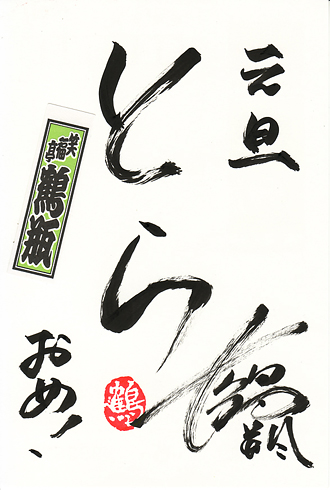 元旦
とら
鶴
笑福亭
鶴瓶
おめ!